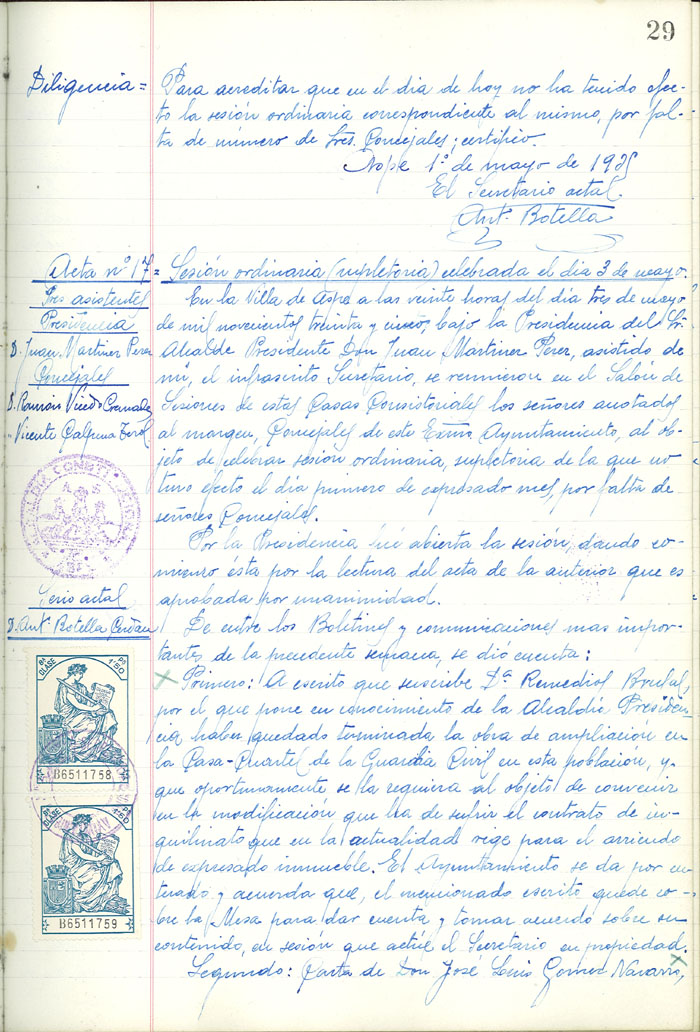 29
Diligencia =
Para acreditar que en el dia de hoy no ha tenido efec-
to la sesión ordinaria correspondiente al mismo, por fal-
ta de número de Sres. Concejales; certifico.
Aspe 1º de mayo de 1935
El Secretario actal.
Antº Botella
Acta nº 17 = Sesión ordinaria (supletoria) celebrada el dia 3 de mayo.
Sres asistentes
Presidencia
D. Juan Martinez Perez
Concejales
D. Ramón Vicedo Cremades
" Vicente Calpena Terol
En la Villa de Aspe a las veinte horas del día tres de mayo
de mil novecientos treinta y cinco, bajo la Presidencia del Sr.
Alcalde Presidente Don Juan Martinez Perez, asistido de
mi, el infrascrito Secretario, se reunieron en el Salón de
Sesiones de estas Casas Consistoriales los señores anotados
al margen, Concejales de este Excmo Ayuntamiento, al ob-
jeto de celebrar sesión ordinaria, supletoria de la que no
tuvo efecto el día primero de expresado mes, por falta de
señores Concejales.
Por la Presidencia fué abierta la sesión, dando co-
mienzo ésta por la lectura del acta de la anterior que es
aprobada por unanimidad.
Serio actal
D. Antº Botella Cerdán
De entre los Boletines y comunicaciones mas impor-
tantes de la precedente semana, se dió cuenta:
Primero: A escrito que suscribe Dª Remedios Brufal
por el que pone en conocimiento de la Alcaldia Presiden-
cia haber quedado terminada la obra de ampliación en
la Casa-Cuartel de la Guardia Civil en esta población, y
que oportunamente se la requiera al objeto de convenir
en la modificación que ha de sufrir el contrato de in-
quilinato que en la actualidad rige para el arriendo
de expresado inmueble. El Ayuntamiento se da por en-
terado y acuerda que, el mencionado escrito quede so-
bre la Mesa para dar cuenta y tomar acuerdo sobre su
contenido, en sesión que actúe el Secretario en propiedad.
Segundo: Carta de Don José Luis Gomez Navarro,
8ª CLASE
Pª 1'50
B6511758
8ª CLASE
Pª 1'50
B6511759